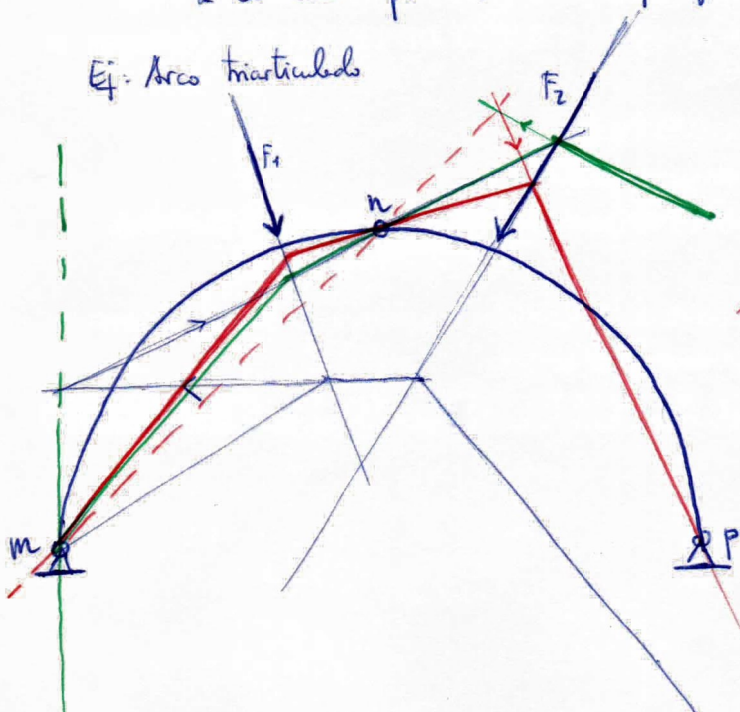 Ej: Arco triarticulado
F₂
F₁
n
m
p